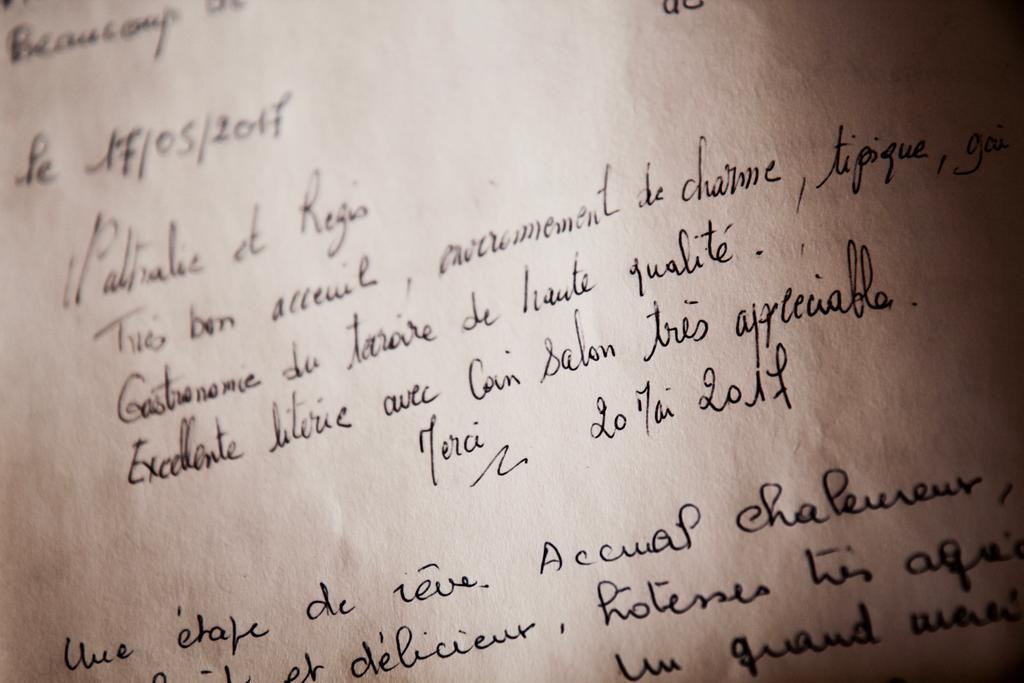 Beaucoup de
de
le 17/05/2017
Nathalie et Regis
Très bon acceuil, environnement de charme, tipique, gai
Gastronomie du terroire de haute qualité.
Excellente literie avec Coin Salon très appreciable.
Merci 20 Mai 2017
Une étape de rêve. Accueil chaleureux,
et délicieux, hotesses très agréa
Un grand merci